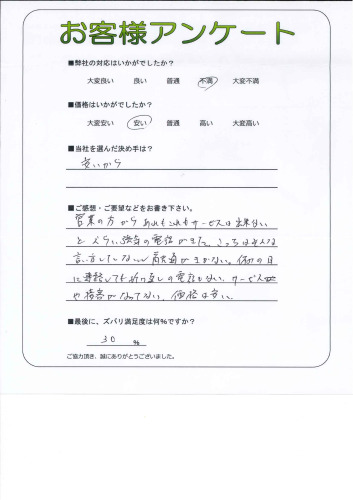 お客様アンケート
■弊社の対応はいかがでしたか?
大変良い 良い 普通 不満 大変不満
■価格はいかがでしたか?
大変安い 安い 普通 高い 大変高い
■当社を選んだ決め手は?
安いから
■ご感想・ご要望などをお書き下さい。
営業の方からあれもこれもサービスは出来ない
と 強気の電話がきた。こっちはそんな
言い方していない 融通がきかない。休みの日
に連絡しても折り返しの電話もない。サービス
や接客がなってない。価格は安い
■最後に、ズバリ満足度は何%ですか?
30 %
ご協力頂き、誠にありがとうございました。